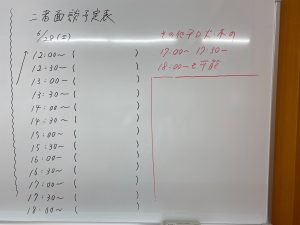 二者面談予定表
6/28(土)
12:00~ (   )
12:30~ (   )
13:00~ (   )
13:30~ (   )
14:00~ (   )
14:30~ (   )
15:00~ (   )
15:30~ (   )
16:00~ (   )
16:30~ (   )
17:00~ (   )
17:30~ (   )
18:00~ (   )
その他平日火・木の
17:00~ 17:30~
18:00~も可能